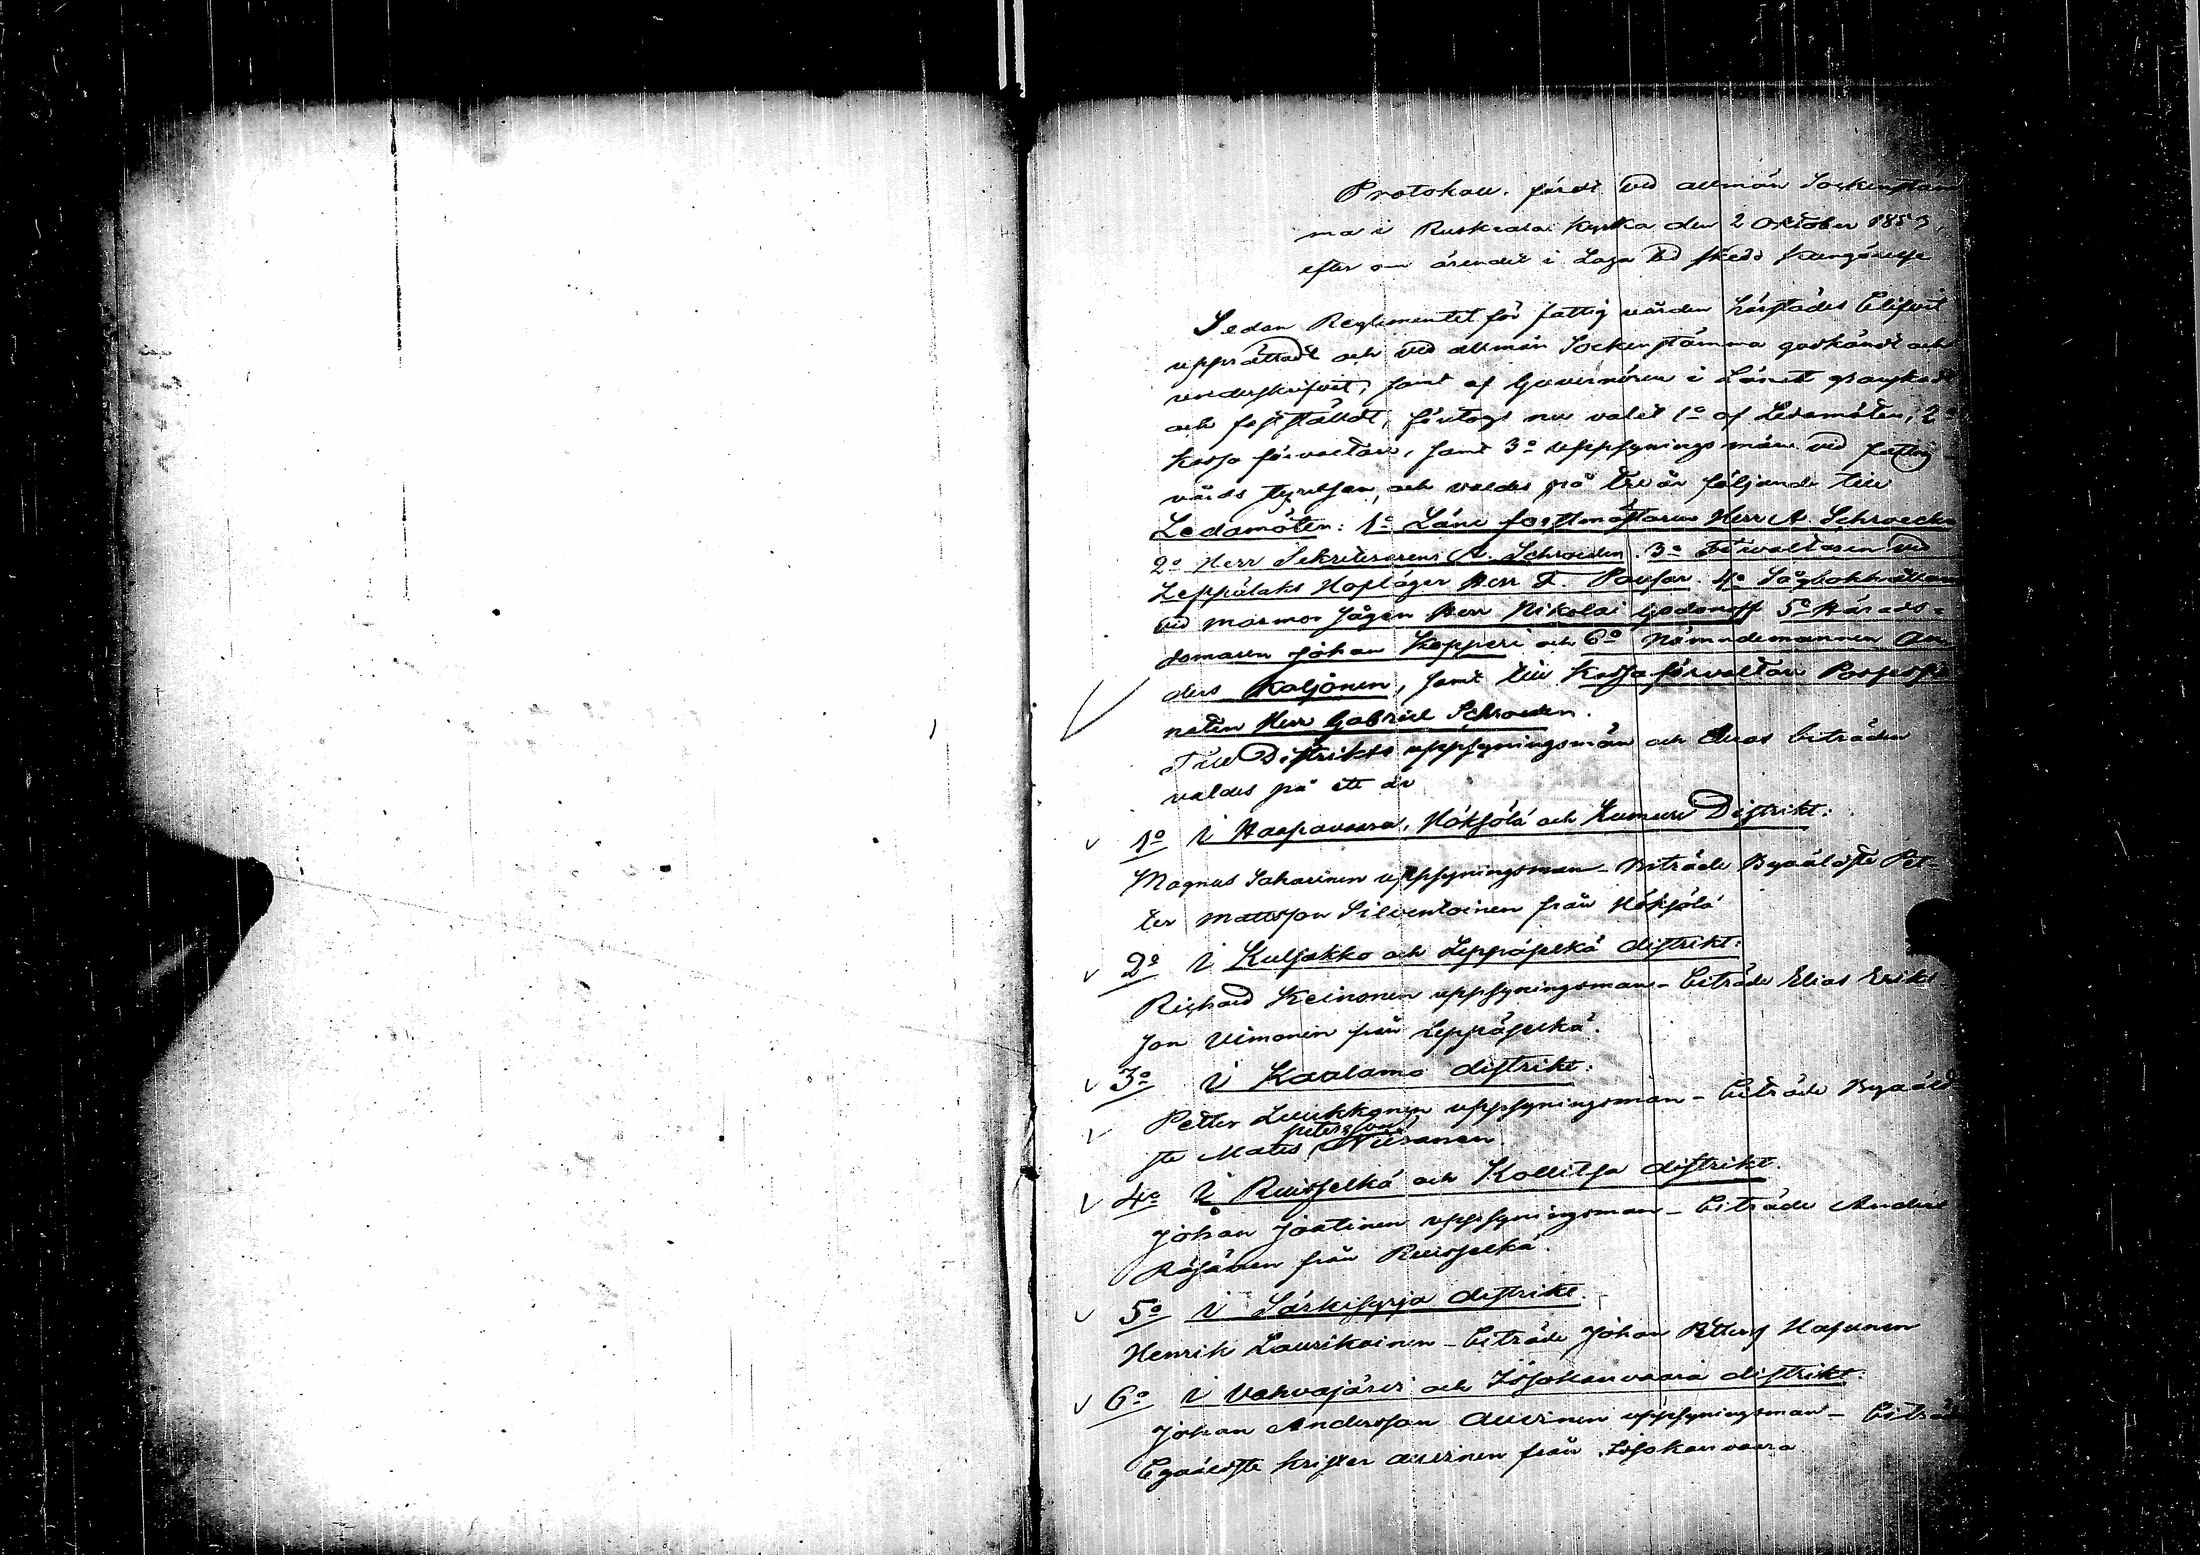 Protokoll, fördt vid allmän Sockenstäm
ma i Ruskeala Kyrka den 2 Oktober 1853,
efter om ärendet i Laga tid skedd kungörelse
Sedan Reglementet för fattigvården härstädes blifvit
upprättadt och vid allmän Sockenstämma godkändt och
underskrifvit, samt af Guvernören i Länet granskadt
och fastställdt, företogs nu valet 1o af Ledamöten, 2o
Kassa förvaltare, samt 3o uppsyningsmän vid fattig
vårds styrelsen, och valdes på tre år följande till
Ledamöten: 1o Läns forstmästaren Herr A. Schroeder
2o Herr Sekreteraren A. Schroeder. 3o Förvaltaren vid
Leppälaks Hopläger Herr F. 4o Sågbokhållaren
vid marmor sågen Herr Nikolai Godonoff 5o Härads-
domaren Johan Kopperi och 6o Nämndemannen An
ders Koljonen, samt till Kassaförvaltare Possessio
naten Herr Gabriel Schroeder.
Till Distrikts uppsyningsmän och deras biträden
valdes på ett år
1o i Haapavaara, Höksölä och Kumuri Distrikt:
Magnus Saharinen uppsyningsman - biträde Byaäldste Pet-
ter Mattsson Silventoinen från Höksölä
2o i Kuljakko och Leppäselkä distrikt:
Richard Keinonen uppsyningsman - biträde Elias Eriks
son Uimonen från Leppäselkä.
3o i Kaalamo distrikt:
Petter Luukkonen uppsyningsman - biträde Byaäld
ste Mats Petersson Niiranen
4o i Ruisselkä och Kollitsa distrikt.
Johan Joutinen uppsyningsman - biträde Anders
Räsänen från Ruisselkä.
5o i Särkisyrja distrikt.
Henrik Laurikainen - biträde Johan Petters Hasunen
6o i Vahvajärvi och Sösökanvaara distrikt:
Johan Andersson Auvinen uppsyningsman - biträde
byaäldste Krister Auvinen från Sösökanvaara